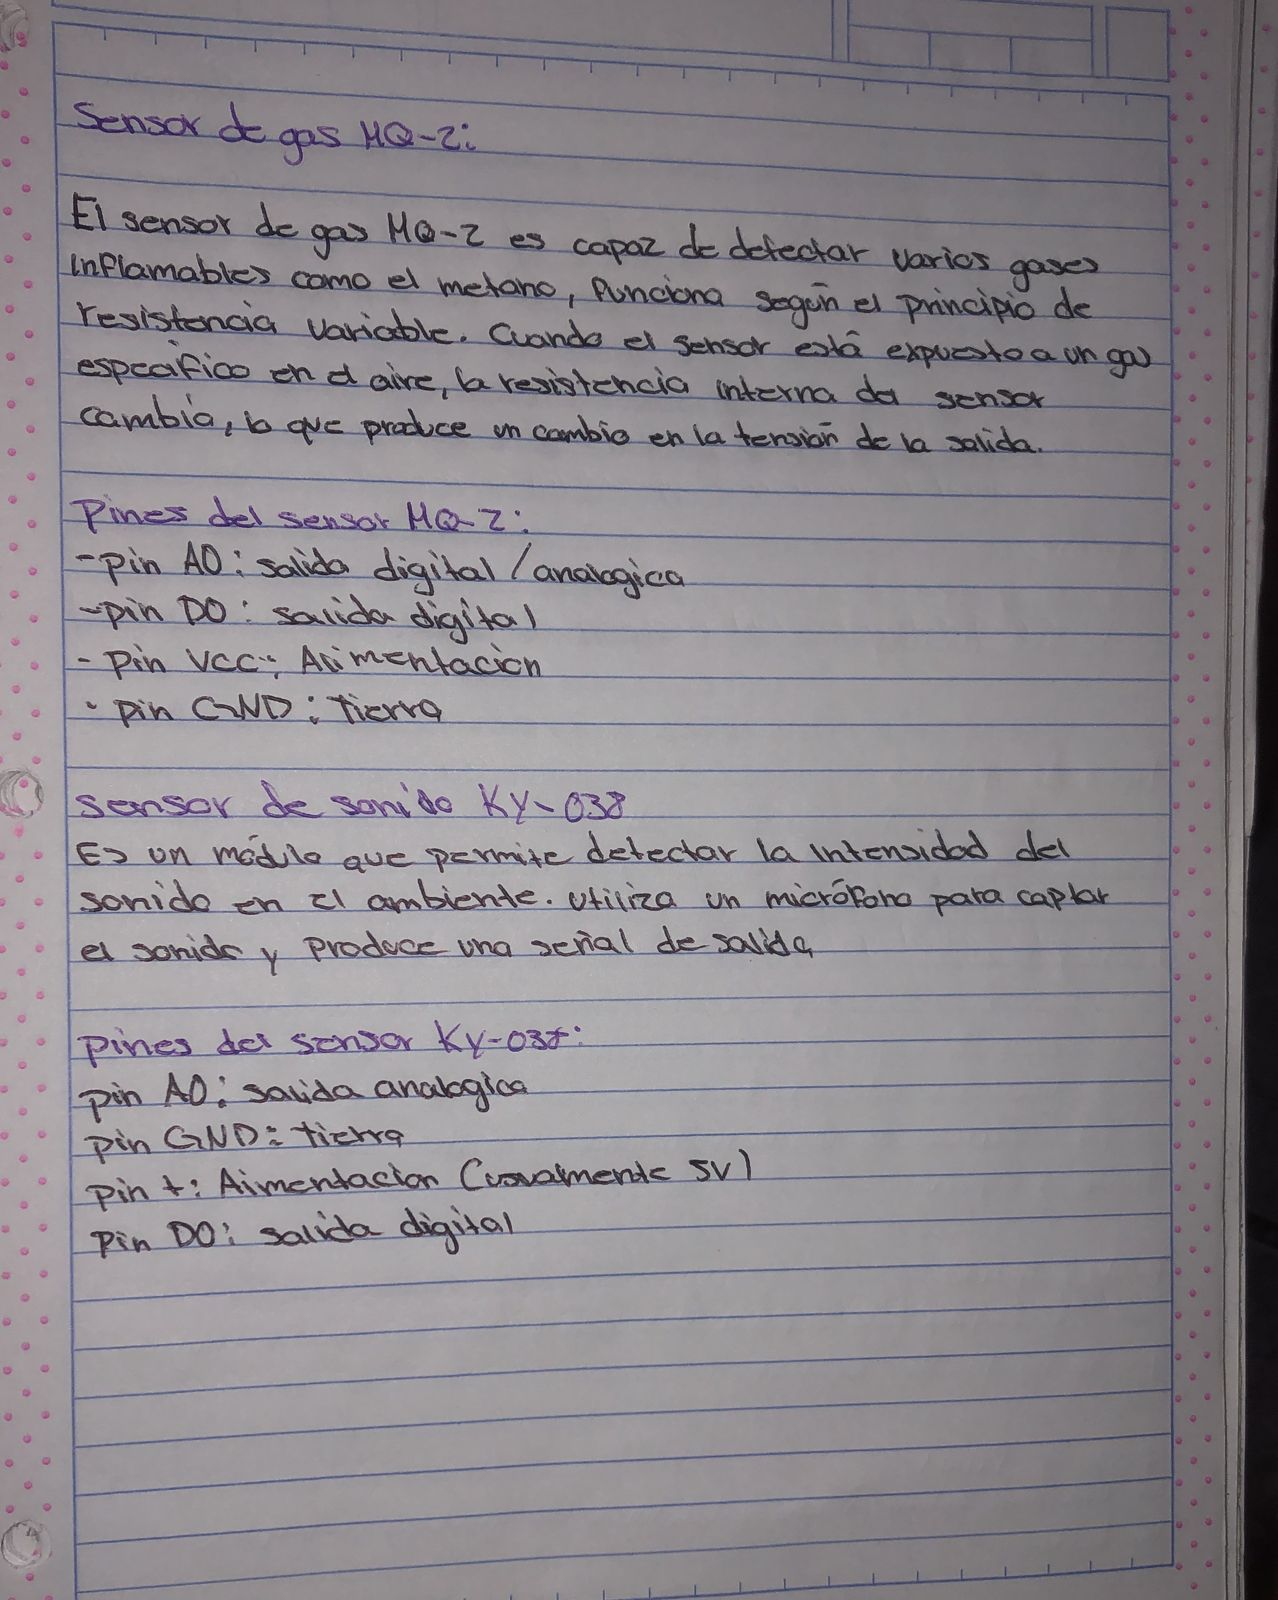 Sensor de gas MQ-2:
El sensor de gas MQ-2 es capaz de detectar varios gases
inflamables como el metano, funciona según el principio de
resistencia variable. Cuando el sensor está expuesto a un gas
especifico en el aire, la resistencia interna del sensor
cambia, lo que produce un cambio en la tensión de la salida.
Pines del sensor MQ-2:
-pin AO: salida digital/analogica
-pin DO: salida digital
- Pin VCC: Alimentacion
- pin GND: Tierra
sensor de sonido KY-038
Es un módulo que permite detectar la intensidad del
sonido en el ambiente. utiliza un micrófono para captar
el sonido y produce una señal de salida
pines del sensor KY-038:
pin AO: salida analogica
pin GND: tierra
pin +: Aimentacion (usualmente 5V)
Pin DO: salida digital